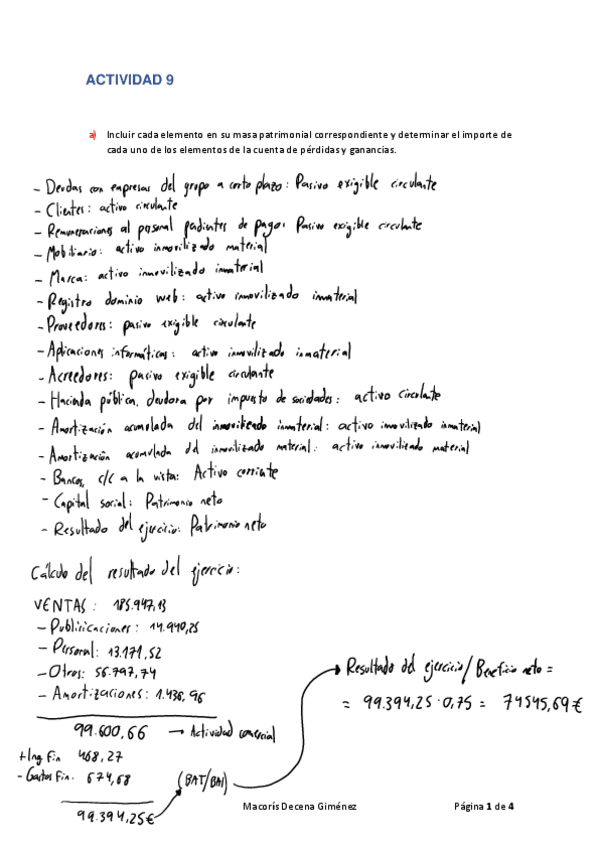 ACTIVIDAD 9
a) Incluir cada elemento en su masa patrimonial correspondiente y determinar el importe de
cada uno de los elementos de la cuenta de pérdidas y ganancias.
- Deudas con empresas del grupo a corto plazo: Pasivo exigible circulante
- Clientes: activo circulante
- Remuneraciones al personal pendientes de pago: Pasivo exigible circulante
- Mobiliario: activo inmovilizado material
- Marca: activo inmovilizado inmaterial
- Registro dominio web: activo inmovilizado inmaterial
- Proveedores: pasivo exigible circulante
- Aplicaciones informáticas: activo inmovilizado inmaterial
- Acreedores: pasivo exigible circulante
- Hacienda pública, deudora por impuesto de sociedades: activo circulante
- Amortización acumulada del inmovilizado inmaterial: activo inmovilizado inmaterial
- Amortización acumulada del inmovilizado material: activo inmovilizado material
- Bancos, c/c a la vista: Activo corriente
- Capital social: Patrimonio neto
- Resultado del ejercicio: Patrimonio neto
Cálculo del resultado del ejercicio:
VENTAS: 185.947,13
- Publicaciones: 14.940,25
- Personal: 13.171,52
- Otros: 56.797,74
- Amortizaciones: 1.436,96
99.600,66 → Actividad comercial
+Ing Fin 468,27
- Gastos Fin. 674,68
(BAT/BAI)
99.394,25€
Resultado del ejercicio/Beneficio neto =
= 99.394,25 · 0,75 = 74545,69€
Macorís Decena Giménez
Página 1 de 4